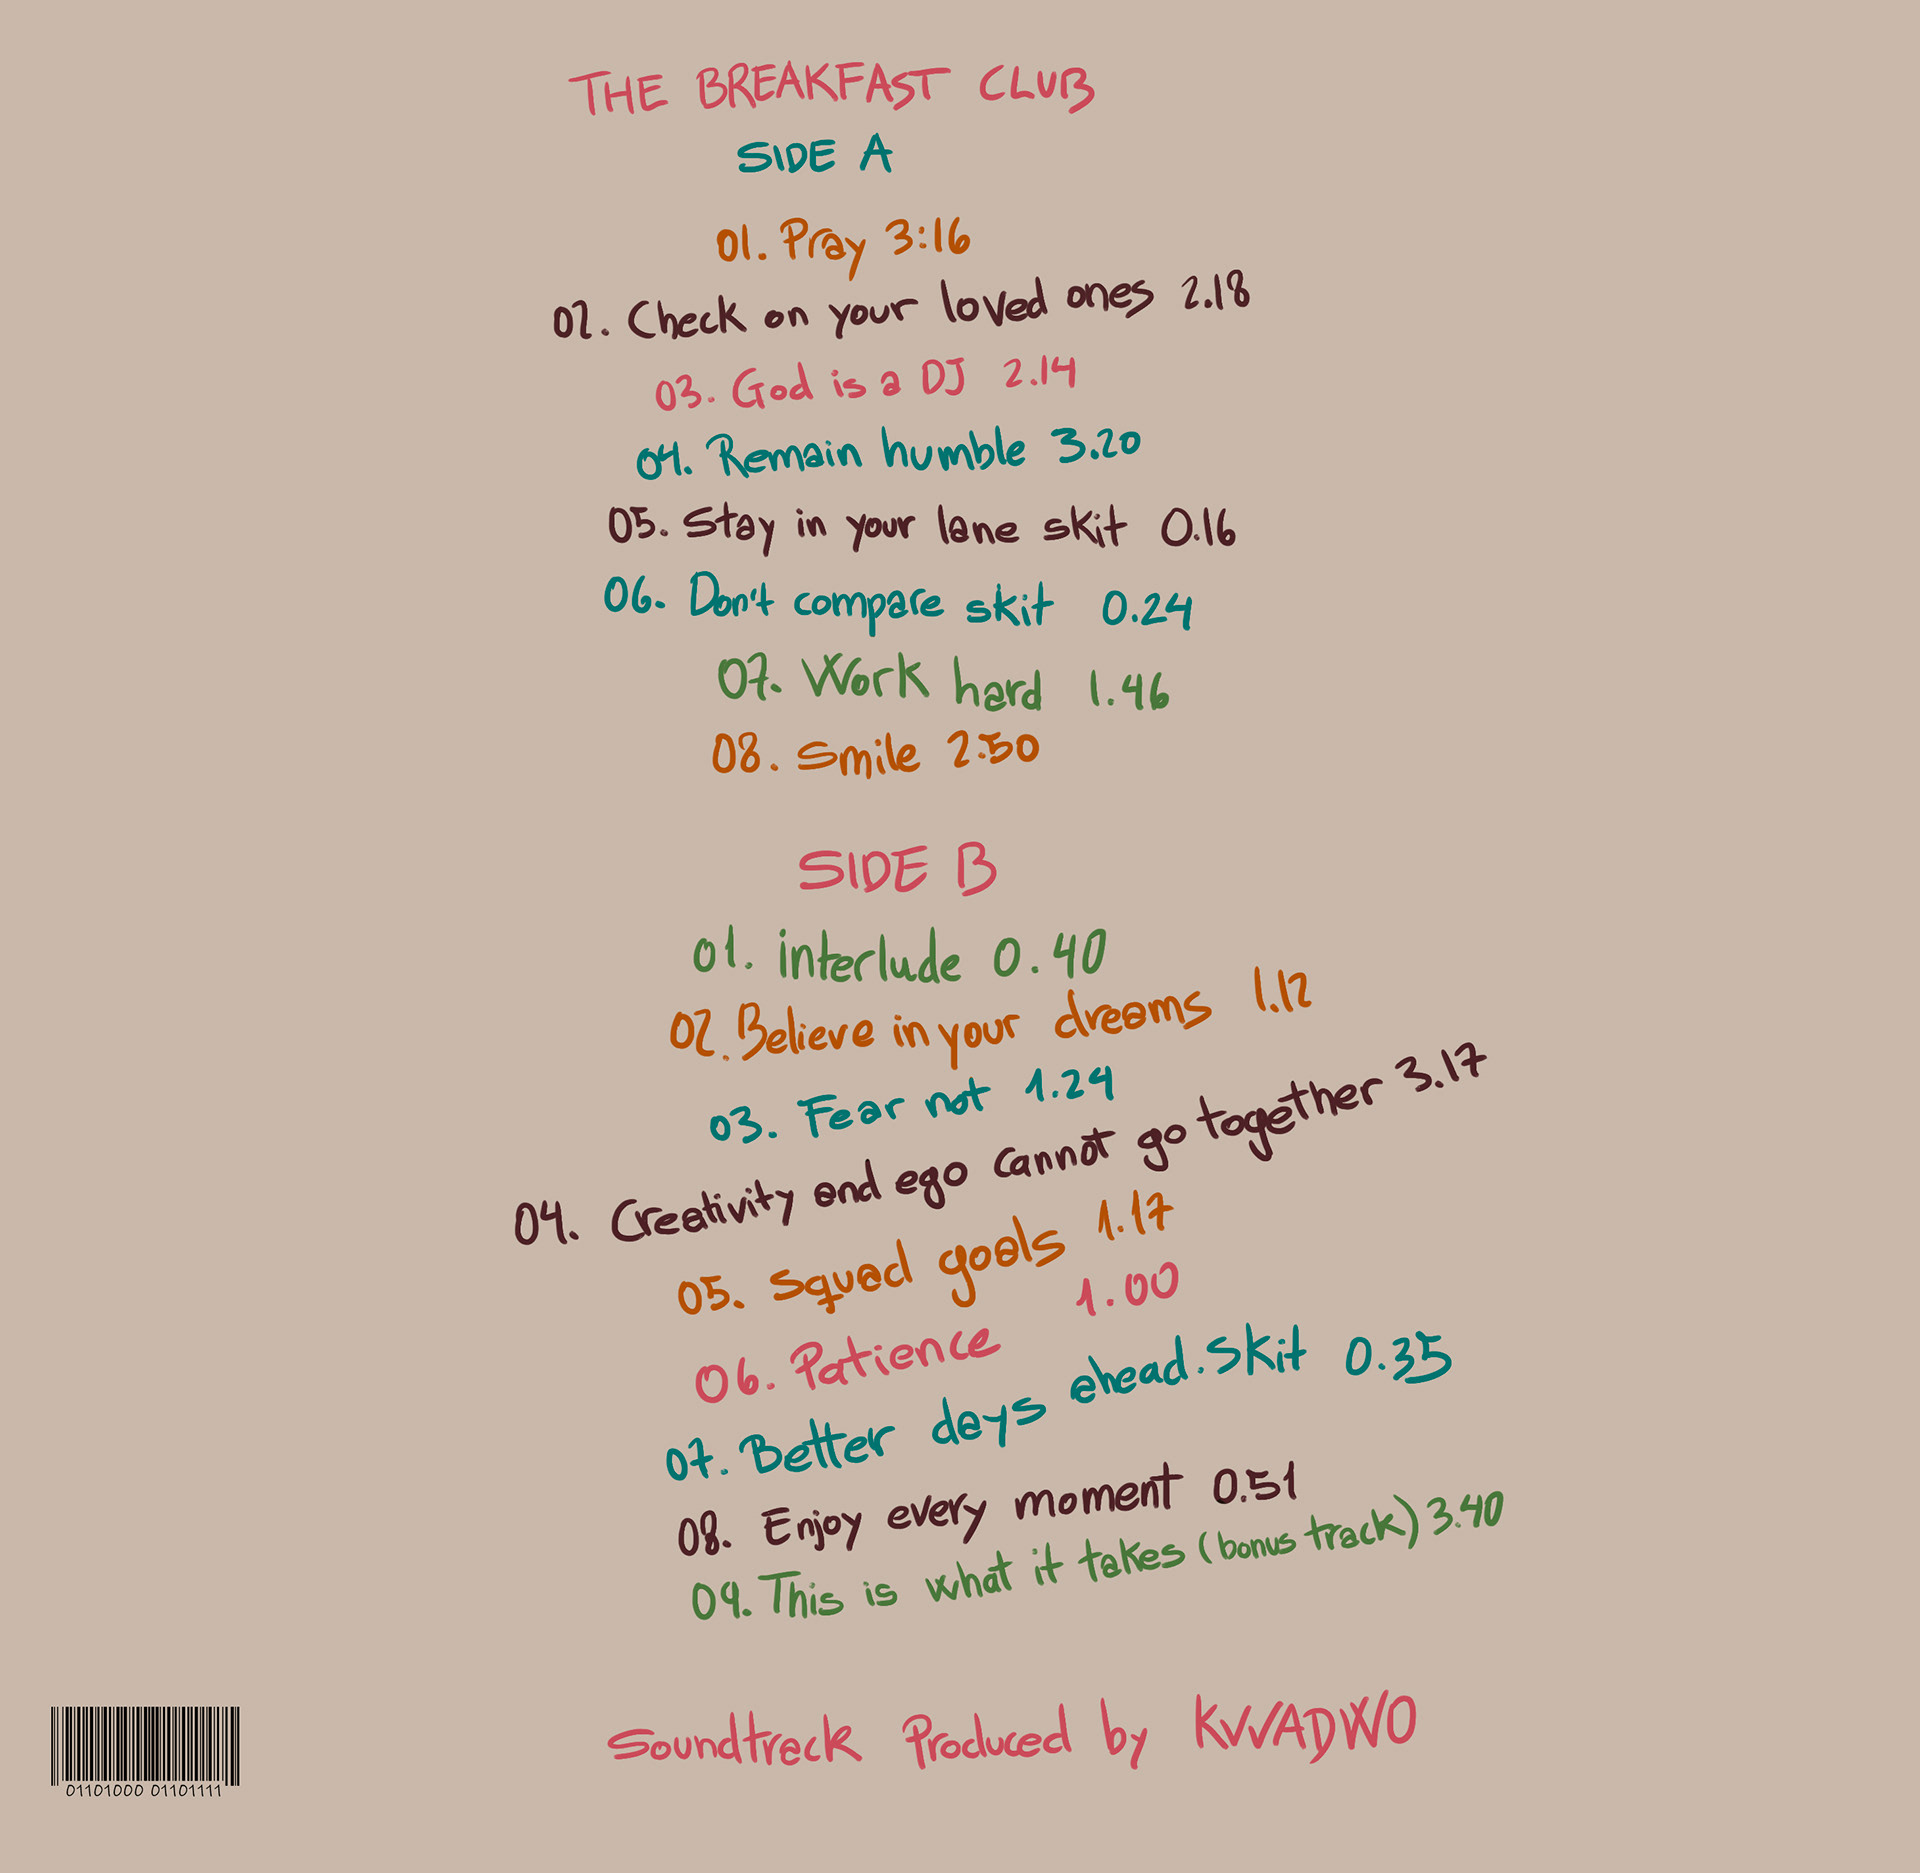 THE BREAKFAST CLUB
SIDE A
01. Pray 3:16
02. Check on your loved ones 2.18
03. God is a DJ 2.14
04. Remain humble 3.20
05. Stay in your lane skit 0.16
06. Don't compare skit 0.24
07. Work hard 1.46
08. Smile 2:50
SIDE B
01. interlude 0.40
02. Believe in your dreams 1.12
03. Fear not 1.24
04. Creativity and ego cannot go together 3.17
05. Squad goals 1.17
06. Patience 1.00
07. Better days ahead. Skit 0.35
08. Enjoy every moment 0.51
09. This is what it takes (bonus track) 3.40
Soundtrack Produced by KWADWO
01101000 01101111